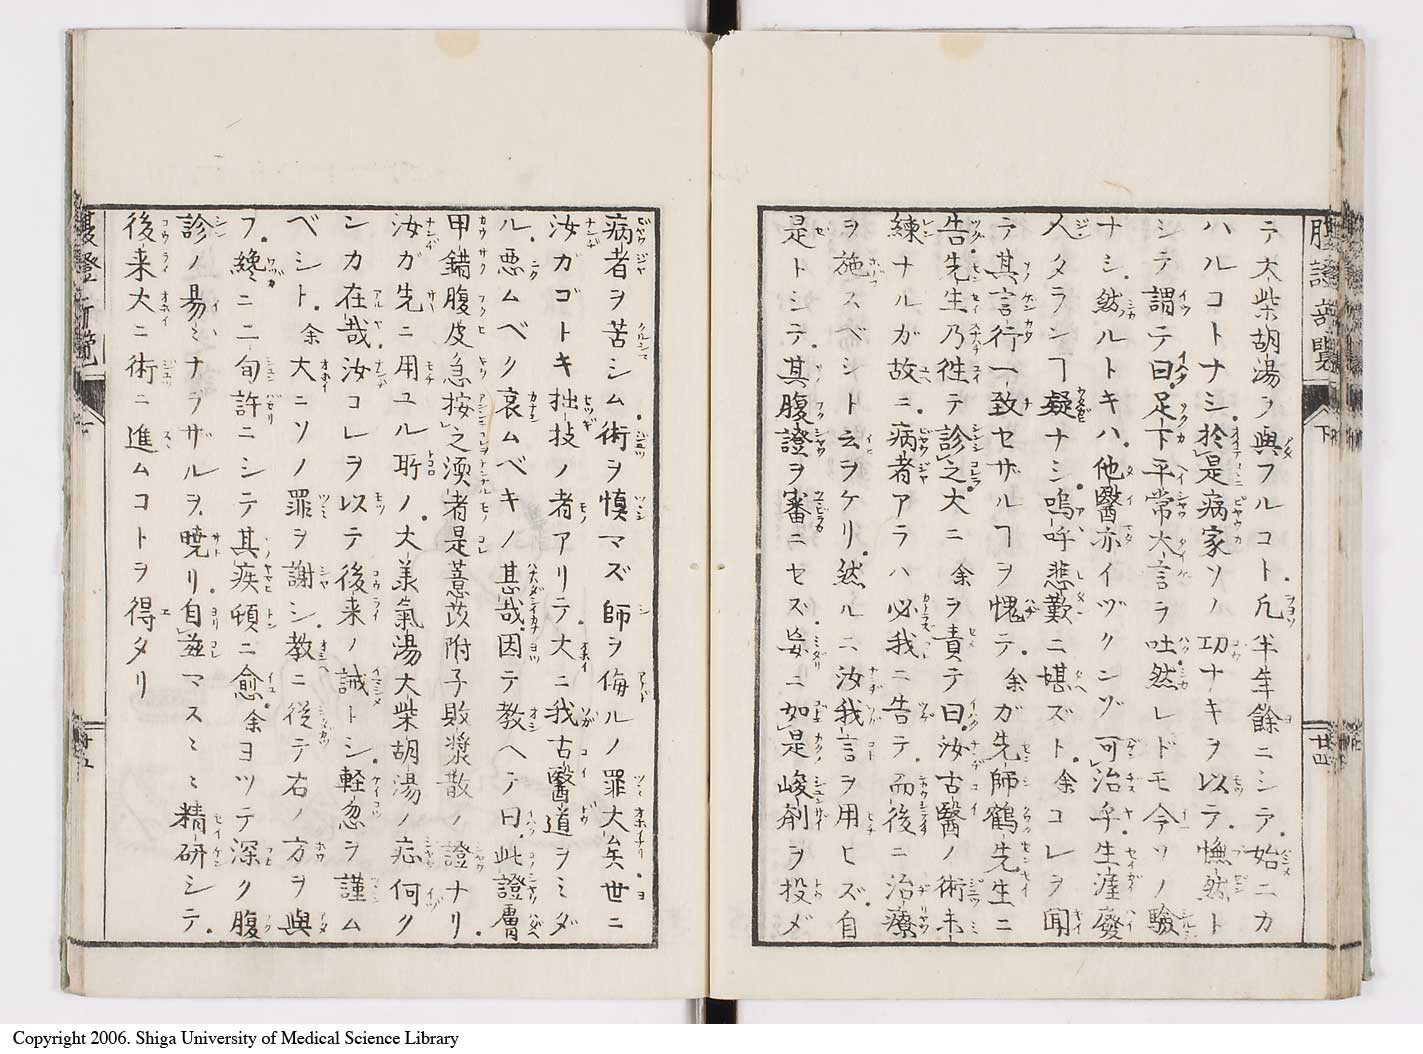 腹證竒覽
下
廿四
テ大柴胡湯ヲ與フルコト凡半年餘ニシテ始ニカ
ハルコトナシ於是病家ソノ功ナキヲ以テ憮然ト
シテ謂テ曰足下平常大言ヲ吐然レドモ今ソノ驗
ナシ然ルトキハ他醫亦イヅクンゾ可治乎生涯廢
人タランヿ疑ナシ嗚呼悲歎ニ堪ズト余コレヲ聞
テ其言行一致セザルヿヲ愧テ余ガ先師鶴先生ニ
告先生乃徃テ診之大ニ余ヲ責テ曰汝古醫ノ術未
練ナルガ故ニ病者アラハ必我ニ告テ而後ニ治療
ヲ施スベシト云ヲケリ然ルニ汝我言ヲ用ヒズ自
是トシテ其腹證ヲ審ニセズ妄ニ如是峻剤ヲ投メ
病者ヲ苦シム術ヲ慎マズ師ヲ侮ルノ罪大矣世ニ
汝ガゴトキ拙技ノ者アリテ大ニ我古醫道ヲミダ
ル悪ムベク哀ムベキノ甚哉因テ教ヘテ曰此證膚
甲錯腹皮急按之濡者是薏苡附子敗漿散ノ證ナリ
汝ガ先ニ用ユル所ノ大承氣湯大柴胡湯ノ症何ク
ンカ在哉汝コレヲ以テ後来ノ誡トシ軽忽ヲ謹ム
ベシト余大ニソノ罪ヲ謝シ教ニ従テ右ノ方ヲ與
フ纔ニ二旬許ニシテ其疾頓ニ愈余ヨツテ深ク腹
診ノ易ミナラザルヲ暁リ自茲マスミミ精研シテ
後来大ニ術ニ進ムコトヲ得タリ